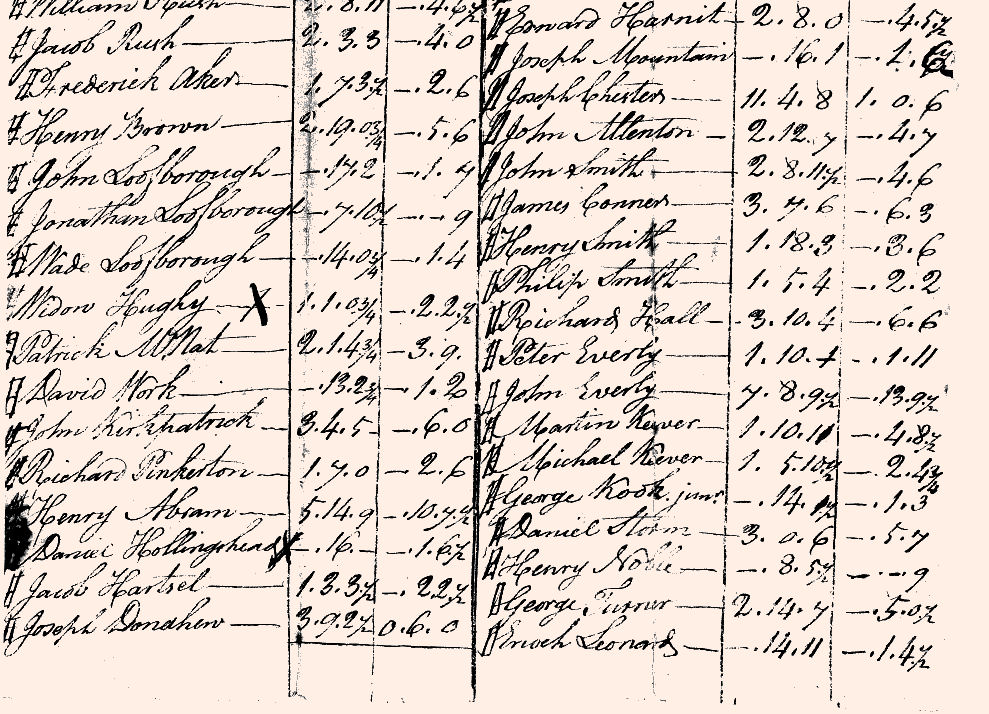 William Rush 2.8.11 —.4.6½
Jacob Rush 2.3.3 —.4.0
Frederick Aker 1.7.3½ —.2.6
Henry Brown 2.19.0¾ —.5.6
John Loofborough —.17.2 —.1.7
Jonathan Loofborough —.7.10½ —.—9
Wade Loofborough —.14.0¾ —.1.4
Widow Hughy X 1.1.0¾ —.2.2½
Patrick McNat 2.1.4¾ —3.9.
David Work —.13.2¾ —.1.2
John Kirkpatrick 3.4.5 —.6.0
Richard Pinkerton 1.7.0 —.2.6
Henry Abram 5.14.9 —.10.7½
Daniel Hollingshead X —.16.— —.1.6½
Jacob Hartsel 1.3.3½ —.2.2½
Joseph Donahew 3.9.2½ 0.6.0
Edward Harnit 2.8.0 —.4.5½
Joseph Mountain —.16.1 —.1.6½
Joseph Chesters 11.4.8 1.0.6
John Allenton 2.12.7 —.4.7
John Smith 2.8.11½ —.4.6
James Conner 3.7.6 —.6.3
Henry Smith 1.18.3 —.3.6
Philip Smith 1.5.4 —.2.2
Richard Hall 3.10.4 —.6.6
Peter Everly 1.10.4 —.1.11
John Everly 7.8.9½ —.13.9½
Martin Kever 1.10.11 —.4.8½
Michael Kever 1.5.10½ —.2.4¾
George Kook junr —.14.1½ —.1.3
Daniel Storm 3.0.6 —.5.7
Henry Noble —.8.5½ —.—9
George Turner 2.14.7 —.5.0½
Enoch Leonard —.14.11 —.1.4½